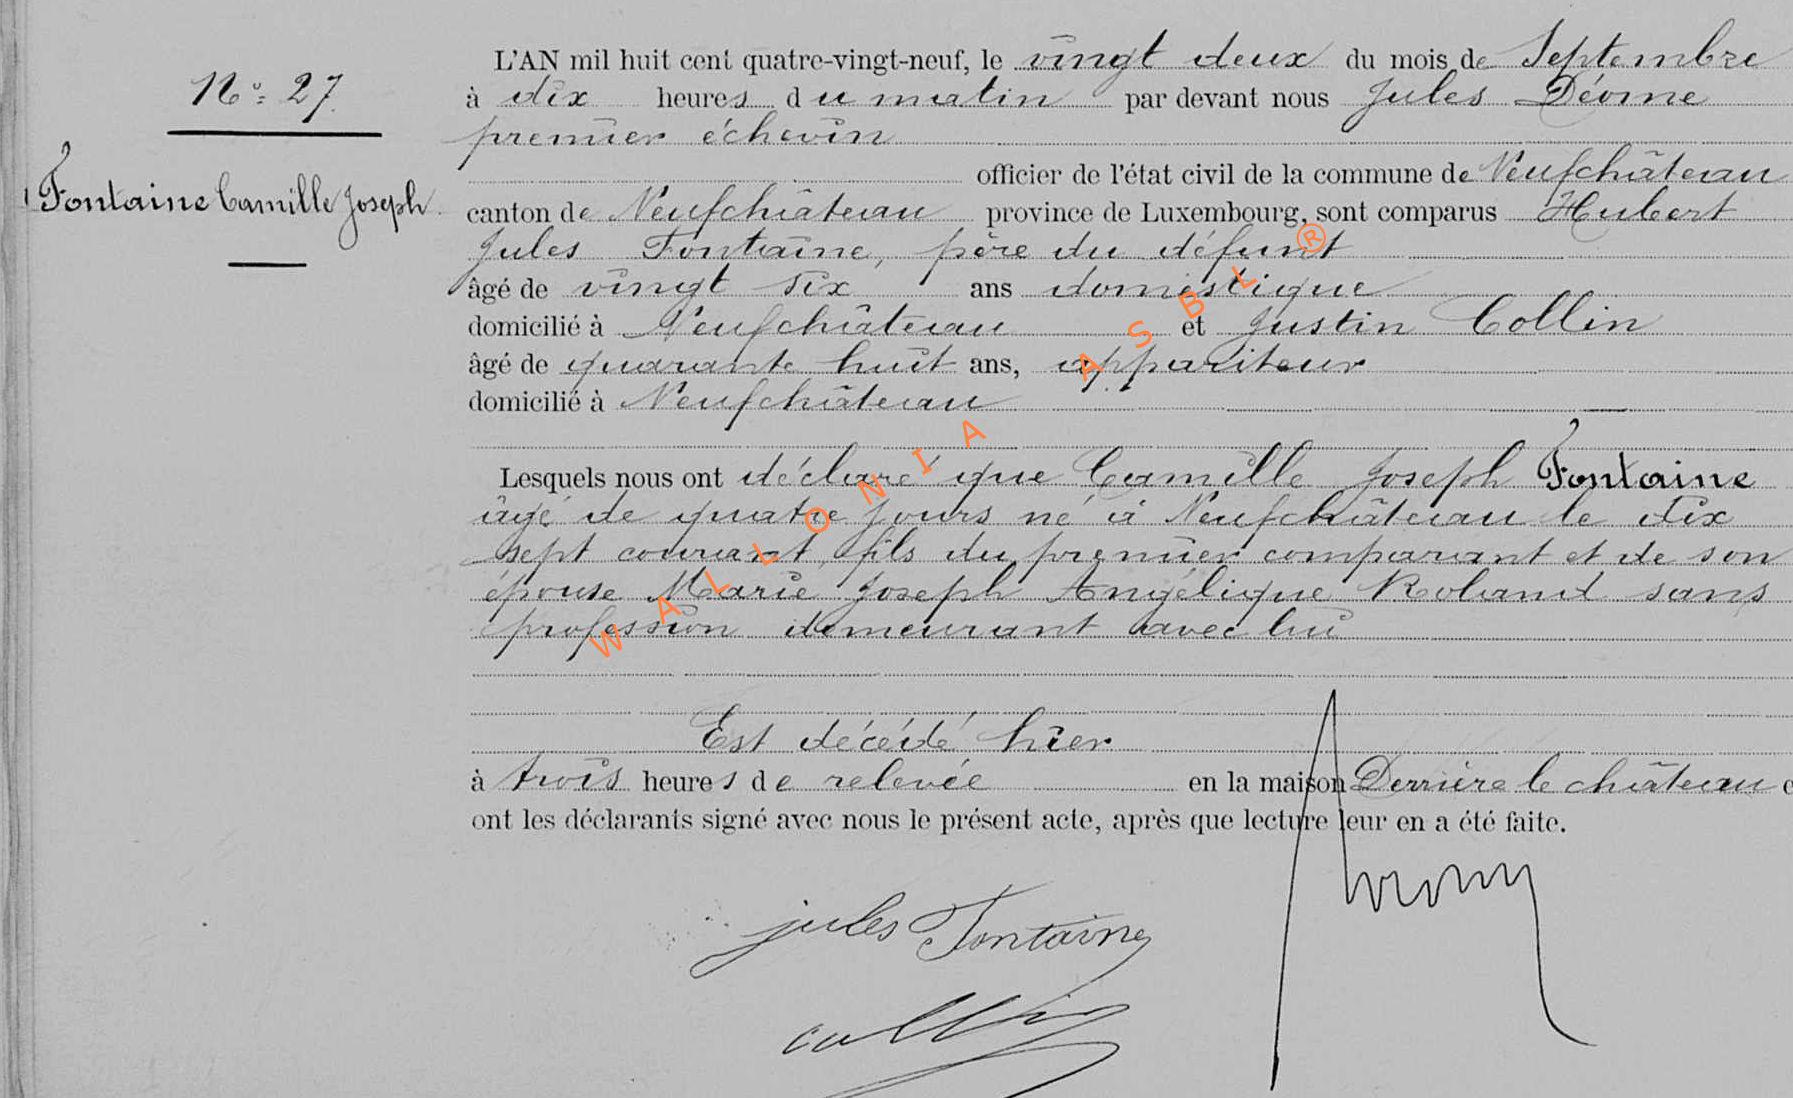 N.º 27.
Fontaine Camille Joseph
L'AN mil huit cent quatre-vingt-neuf, le vingt deux du mois de Septembre
à dix heures du matin par devant nous Jules Déome
premier échevin
officier de l'état civil de la commune de Neufchâteau
canton de Neufchâteau province de Luxembourg, sont comparus Hubert
Jules Fontaine, père du défunt
âgé de vingt six ans domestique
domicilié à Neufchâteau et Justin Collin
âgé de quarante huit ans, appariteur
domicilié à Neufchâteau
Lesquels nous ont déclaré que Camille Joseph Fontaine
âgé de quatre jours né à Neufchâteau le dix
sept courant, fils du premier comparant et de son
épouse Marie Joseph Angélique Roland sans
profession demeurant avec lui
Est décédé hier
à trois heures de relevée en la maison Derrière le château
ont les déclarants signé avec nous le présent acte, après que lecture leur en a été faite.
jules Fontaine
collin
WALLONIA ASBL ®